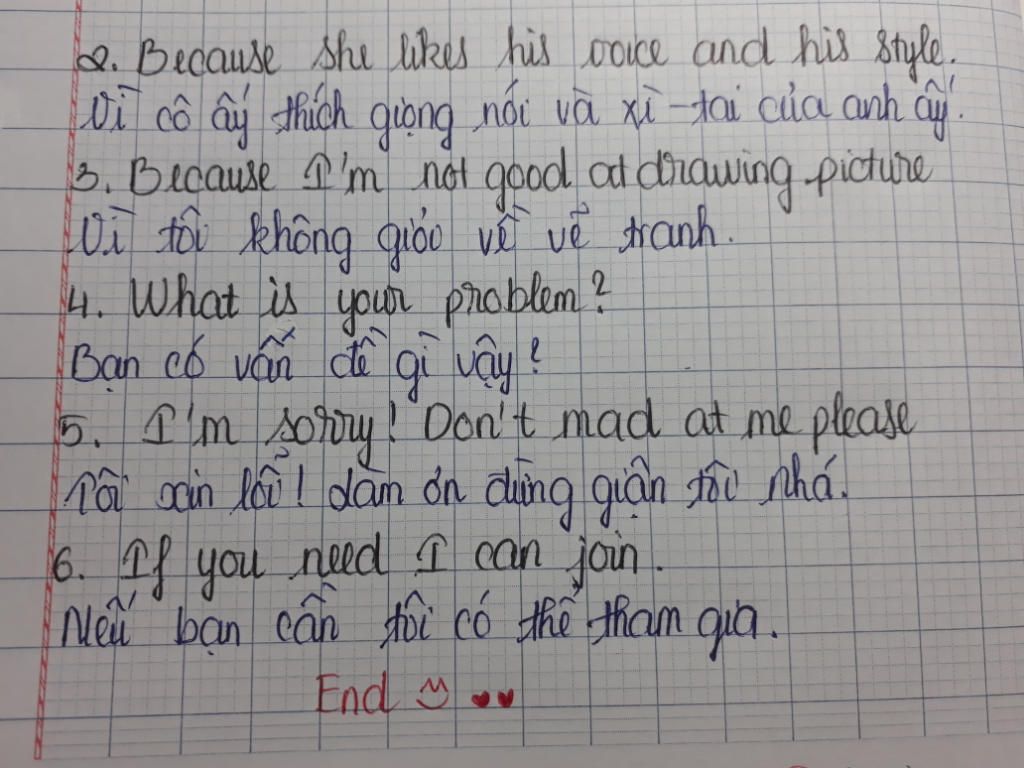 2. Because she likes his voice and his style.
Vì cô ấy thích giọng nói và xì-tai của anh ấy.
3. Because I'm not good at drawing picture
Vì tôi không giỏi về vẽ tranh.
4. What is your problem?
Bạn có vấn đề gì vậy?
5. I'm sorry! Don't mad at me please
Tôi xin lỗi! làm ơn đừng giận tôi nhá.
6. If you need I can join.
Nếu bạn cần tôi có thể tham gia.
End